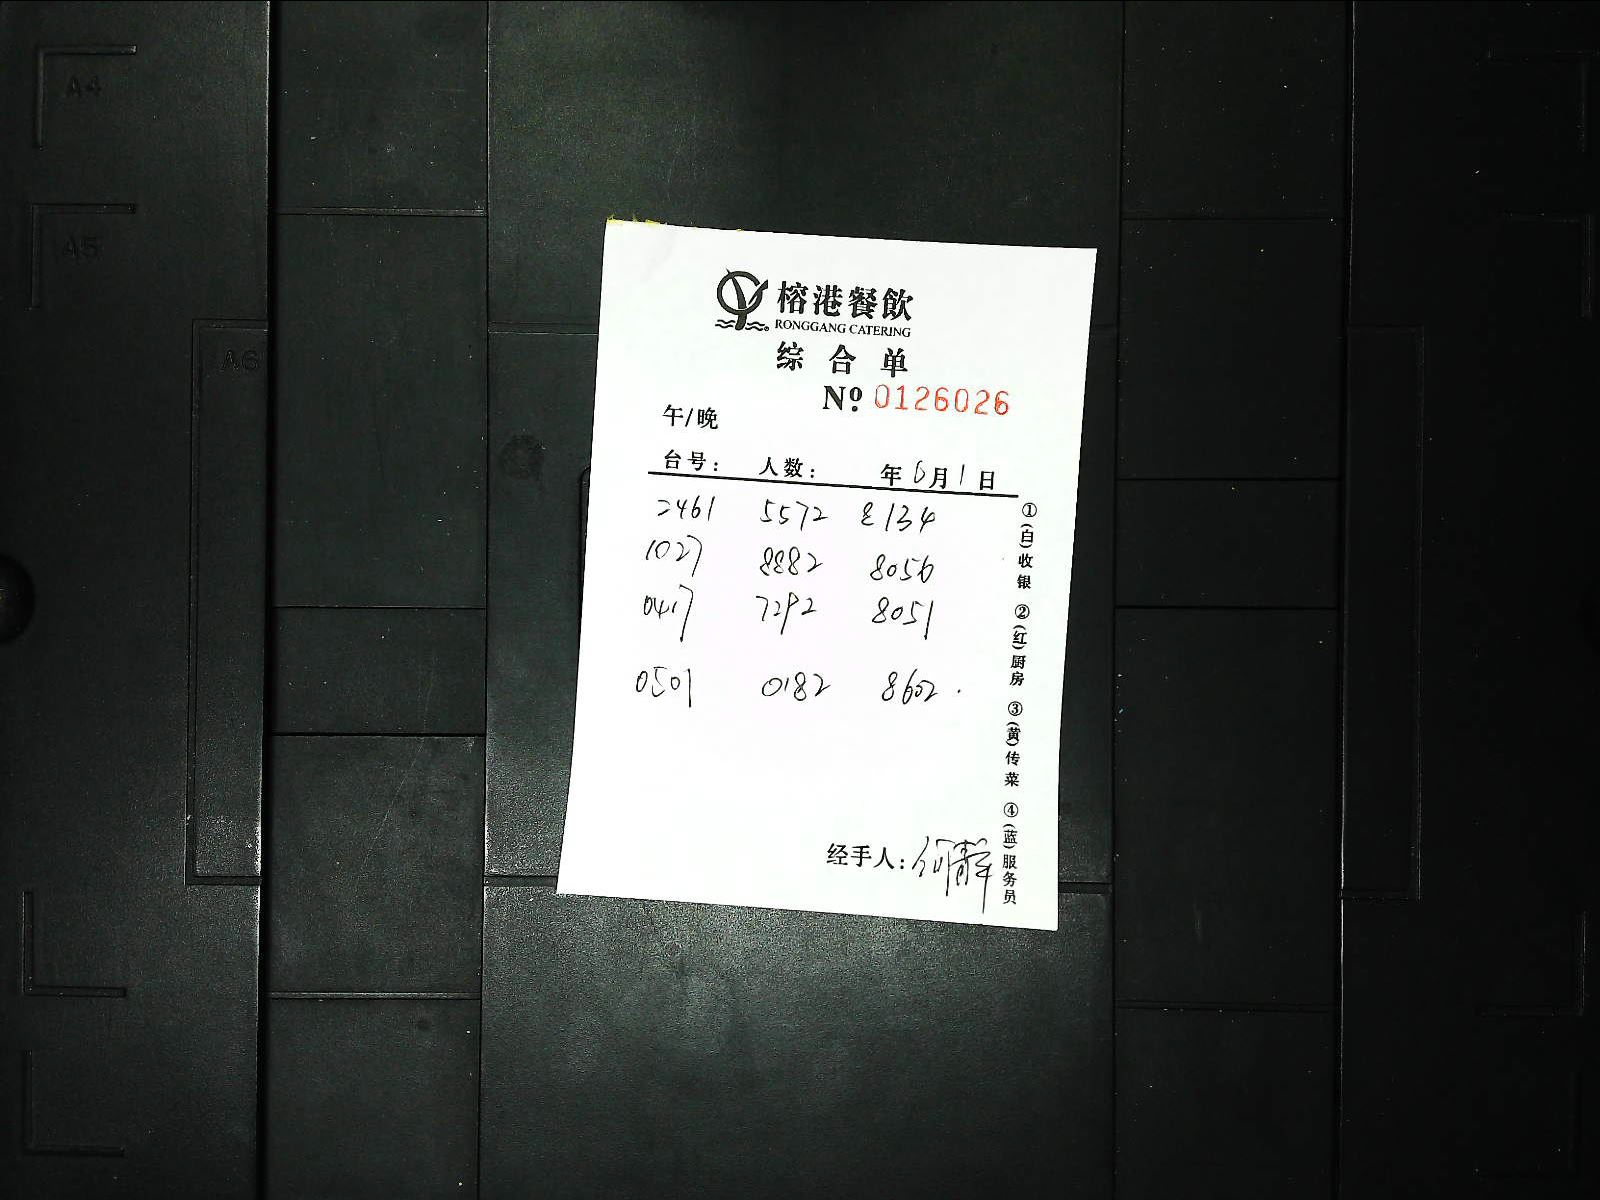 A4
A5
A6
榕港餐飲
RONGGANG CATERING
综合单
Nº 0126026
午/晚
台号： 人数： 年6月1日
2461 5572 8134
1027 8882 8056
0417 7292 8051
0501 0182 8602.
经手人：何静
①(白)收银 ②(红)厨房 ③(黄)传菜 ④(蓝)服务员